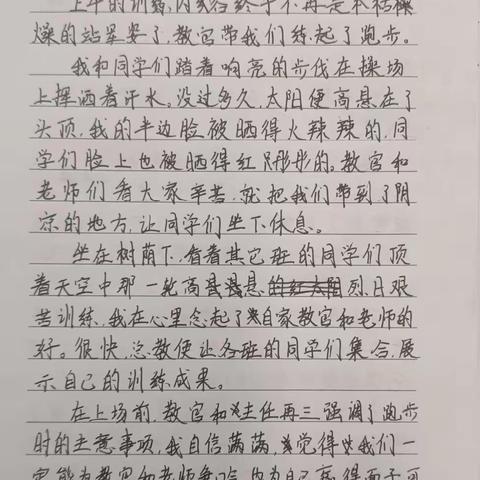 上午的训练,内容终于不再是本枯燥
燥的站军姿了,教官带我们练起了跑步。
我和同学们踏着响亮的步伐在操场
上挥洒着汗水。没过多久,太阳便高悬在了
头顶,我的半边脸被晒得火辣辣的,同
学们脸上也被晒得红彤彤的。教官和
老师们看大家辛苦,就把我们带到了阴
凉的地方,让同学们坐下休息。
坐在树荫下,看着其它班的同学们顶
着天空中那一轮高悬的烈日艰
苦训练,我在心里念起了自家教官和老师的
好。很快,总教便让各班的同学们集合,展
示自己的训练成果。
在上场前,教官和主任再三强调了跑步
时的主意事项,我自信满满,觉得我们一
定能为教官和老师争